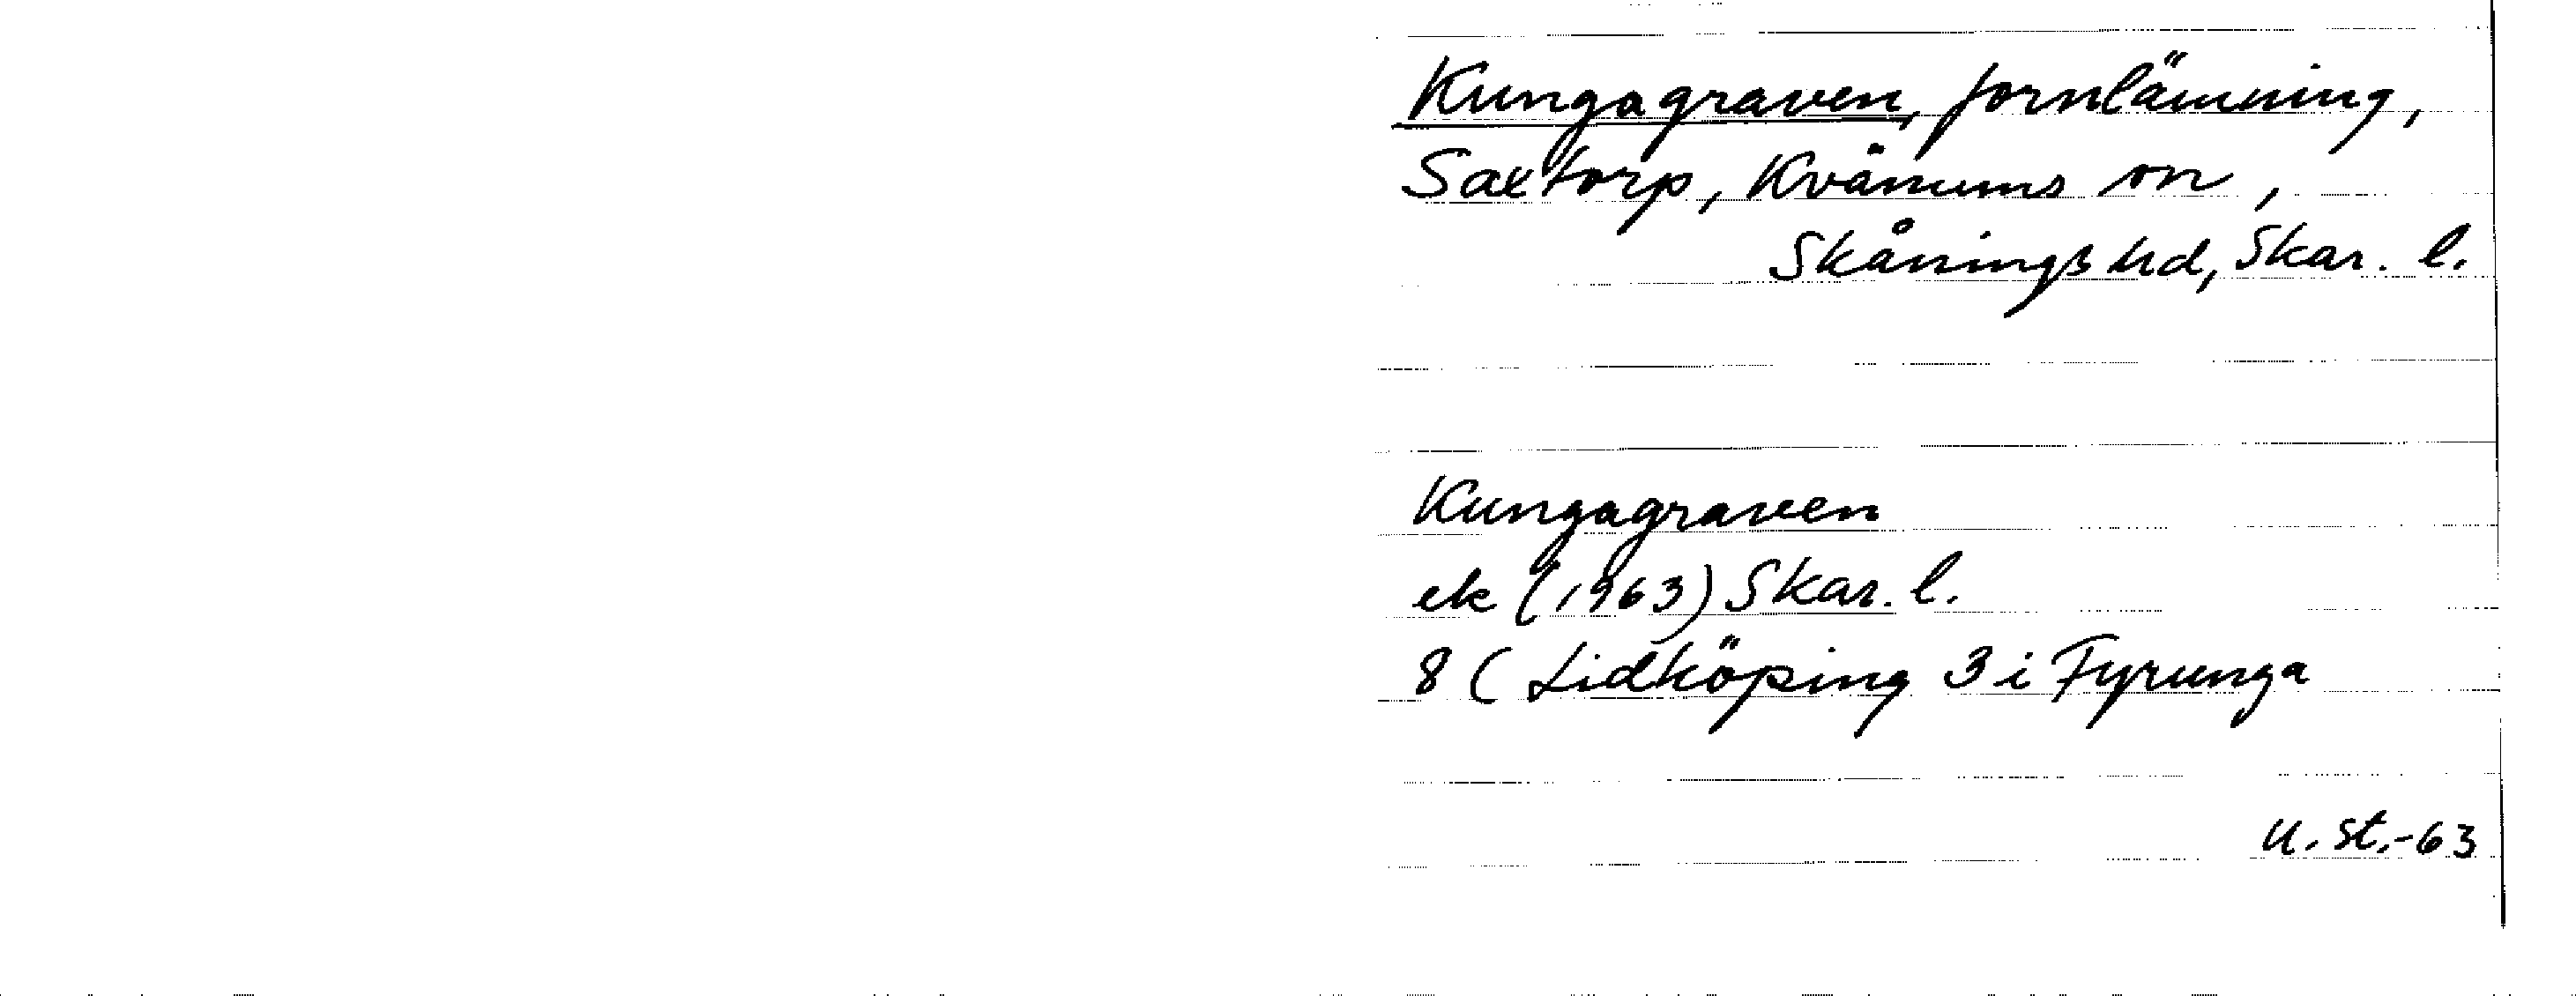 Kungagraven, fornlämning,
Saxtorp, Kvänums sn,
Skånings hd, Skar. l.
Kungagraven
ek (1963) Skar. l.
8 C Lidköping 3 i Fyrunga
U. St. -63